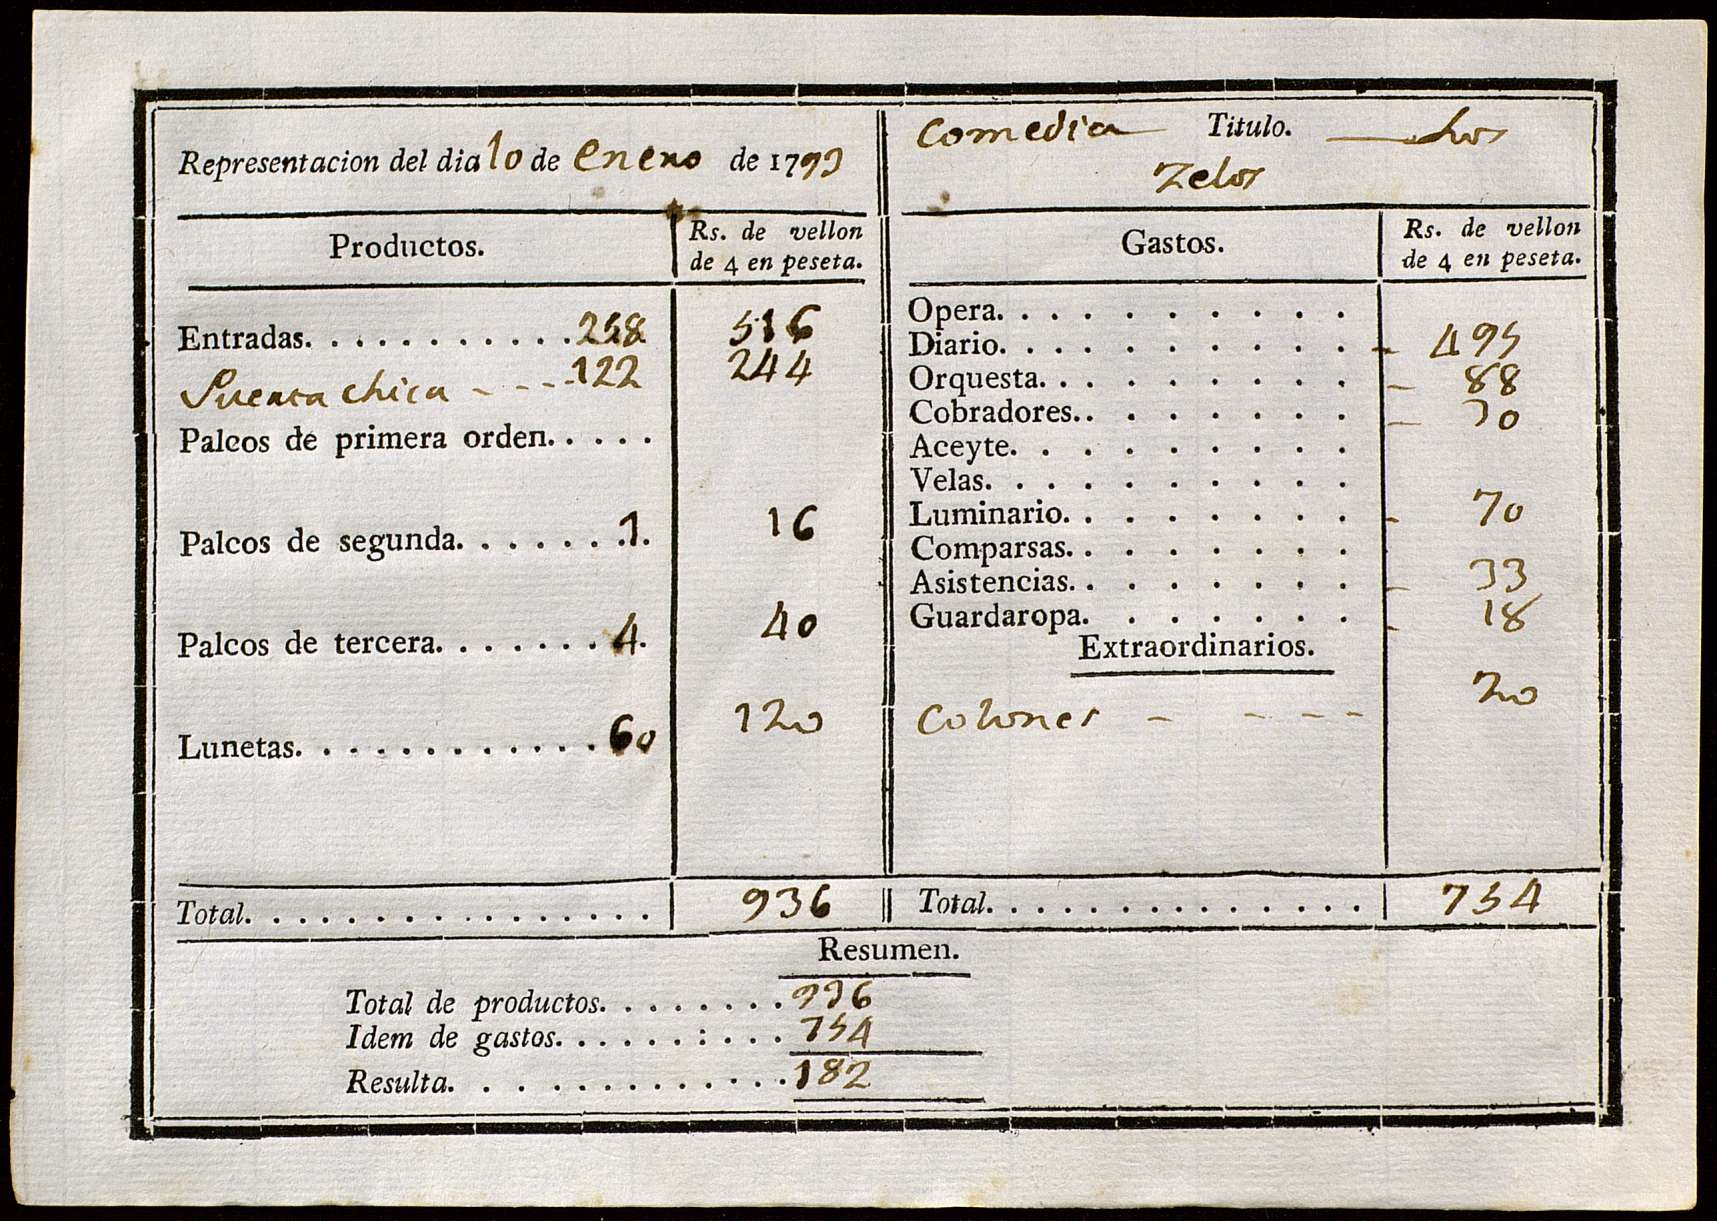 Representacion del dia 10 de enero de 1793
Comedia Titulo. Los
Zelos
Productos.
Rs. de vellon
de 4 en peseta.
Entradas. . . . . . . . . . . 258 516
Puerta chica - - - - 122 244
Palcos de primera orden. . . . .
Palcos de segunda. . . . . . . 1. 16
Palcos de tercera. . . . . . . 4. 40
Lunetas. . . . . . . . . . . . 60 120
Total. . . . . . . . . . . . . . . . 936
Gastos.
Rs. de vellon
de 4 en peseta.
Opera. . . . . . . . . .
Diario. . . . . . . . . . 495
Orquesta. . . . . . . . . 88
Cobradores. . . . . . . . 30
Aceyte. . . . . . . . .
Velas. . . . . . . . . .
Luminario. . . . . . . . 70
Comparsas. . . . . . . .
Asistencias. . . . . . . . 33
Guardaropa. . . . . . . 18
Extraordinarios.
- - - - 20
Total. . . . . . . . . . . . . . 754
Resumen.
Total de productos. . . . . . . . 936
Idem de gastos. . . . . . : . . . 754
Resulta. . . . . . . . . . . . 182